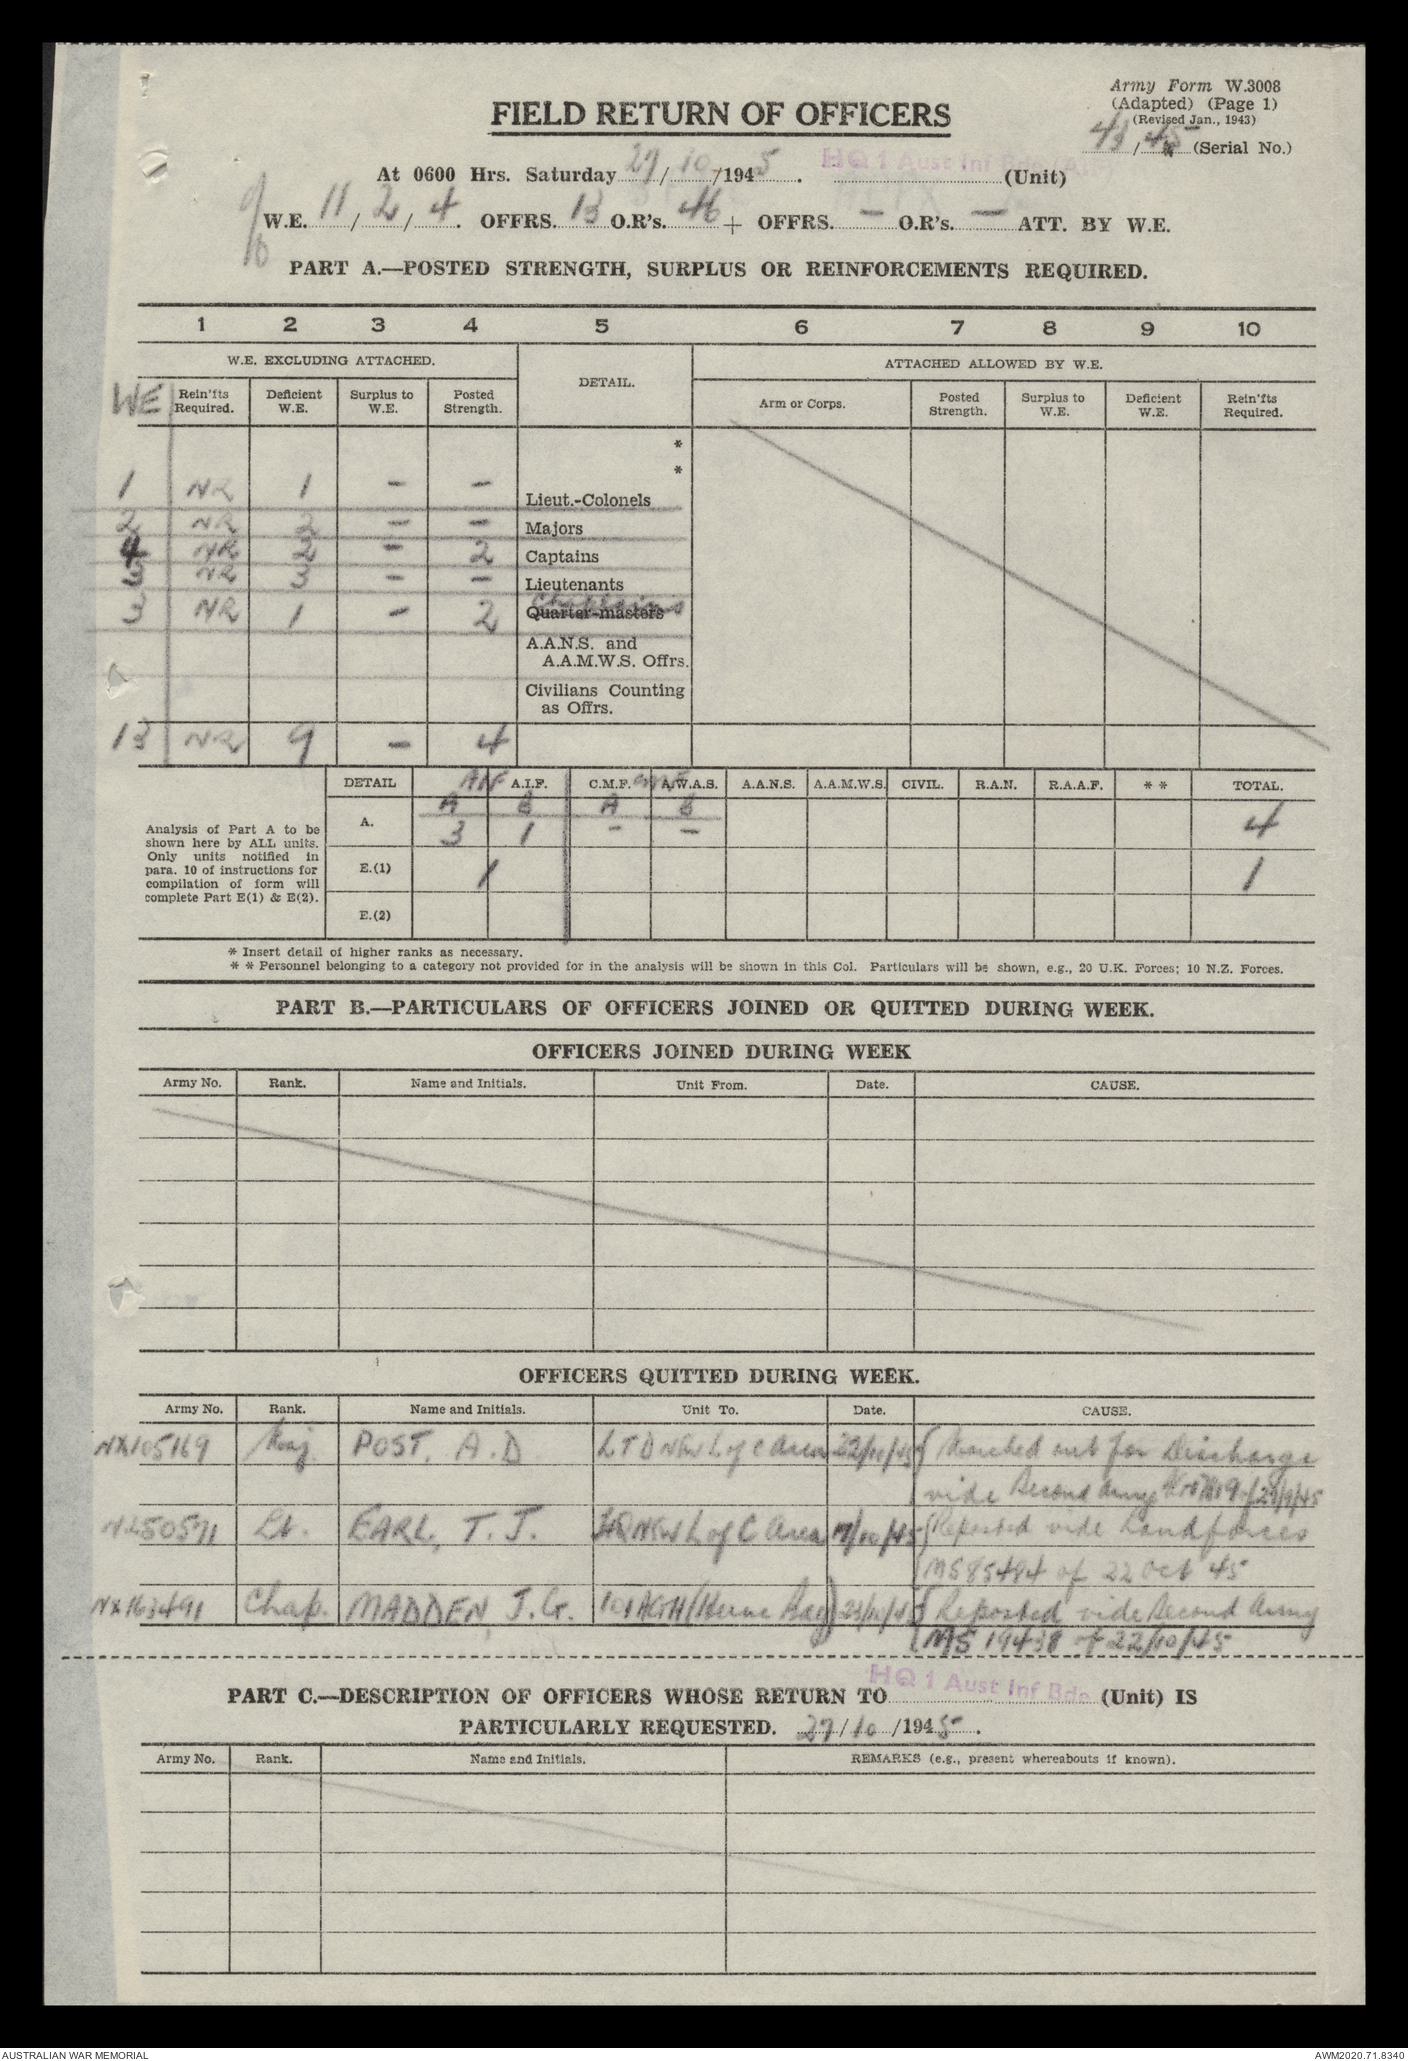 Army Form W.3008
(Adapted) (Page 1)
(Revised Jan., 1943)
43/45 (Serial No.)
FIELD RETURN OF OFFICERS
At 0600 Hrs. Saturday 27/10/1945. HQ 1 Aust Inf Bde (AIF) (Unit)
W.E. 11/2/4. OFFRS. 13 O.R's. 46 + OFFRS. — O.R's. — ATT. BY W.E.
PART A.—POSTED STRENGTH, SURPLUS OR REINFORCEMENTS REQUIRED.
1 2 3 4 5 6 7 8 9 10
W.E. EXCLUDING ATTACHED. DETAIL. ATTACHED ALLOWED BY W.E.
WE Rein'fts Required. Deficient W.E. Surplus to W.E. Posted Strength. Arm or Corps. Posted Strength. Surplus to W.E. Deficient W.E. Rein'fts Required.
*
*
1 NR 1 — — Lieut.-Colonels
2 NR 2 — — Majors
4 NR 2 — 2 Captains
3 NR 3 — — Lieutenants
3 NR 1 — 2 Quarter-masters Chaplains
A.A.N.S. and
A.A.M.W.S. Offrs.
Civilians Counting
as Offrs.
13 NR 9 — 4
DETAIL AIF A.I.F. C.M.F. CMF A.W.A.S. A.A.N.S. A.A.M.W.S. CIVIL. R.A.N. R.A.A.F. * * TOTAL.
A B A B
A. 3 1 — — 4
E.(1) 1 1
E.(2)
Analysis of Part A to be
shown here by ALL units.
Only units notified in
para. 10 of instructions for
compilation of form will
complete Part E(1) & E(2).
* Insert detail of higher ranks as necessary.
* * Personnel belonging to a category not provided for in the analysis will be shown in this Col. Particulars will be shown, e.g., 20 U.K. Forces; 10 N.Z. Forces.
PART B.—PARTICULARS OF OFFICERS JOINED OR QUITTED DURING WEEK.
OFFICERS JOINED DURING WEEK
Army No. Rank. Name and Initials. Unit From. Date. CAUSE.
OFFICERS QUITTED DURING WEEK.
Army No. Rank. Name and Initials. Unit To. Date. CAUSE.
NX105169 Maj. POST, A.D LTD NSW L of C Area 22/10/45 Marched out for Discharge
vide Second Army
N250571 Lt. EARL, T.J. HQ NSW L of C Area /10/45 Reposted vide Landforces
MS85484 of 22 Oct 45
NX163491 Chap. MADDEN, J.G. 101 AGH (Herne Bay) 23/10/45 Reposted vide Second Army
MS 19438 of 22/10/45
PART C.—DESCRIPTION OF OFFICERS WHOSE RETURN TO HQ 1 Aust Inf Bde (Unit) IS
PARTICULARLY REQUESTED. 27/10/1945.
Army No. Rank. Name and Initials. REMARKS (e.g., present whereabouts if known).
AUSTRALIAN WAR MEMORIAL AWM2020.71.8340